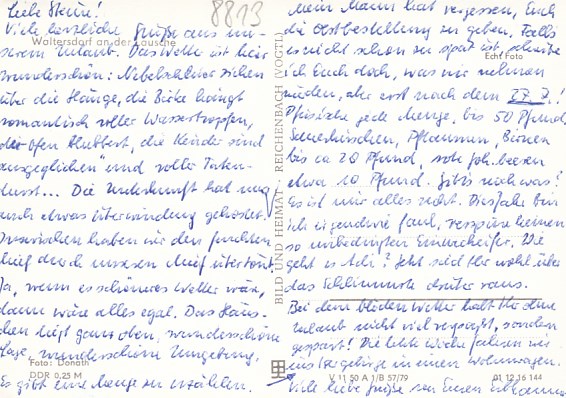 Liebe Steine!
8813
Viele herzliche Grüße aus un-
serem Urlaub. Das Wetter ist hier
Woltersdorf an der Lausche
wunderschön: Nebelschleier ziehen
über die Hänge, die Birke hängt
romantisch voller Wassertropfen,
der Ofen blubbert, die Kinder sind
"ausgeglichen" und voller Taten-
durst... Die Unterkunft hat uns
auch etwas Überwindung gekostet.
Inzwischen haben wir den
Mief durch unseren Mief übertönt.
Ja, wenn es schöneres Wetter wär,
dann wäre alles egal. Das Häus-
chen liegt ganz oben, wunderschöne
Lage, wunderschöne Umgebung.
Foto: Donath
DDR 0,25 M
Es gibt eine Menge zu erzählen.
BILD UND HEIMAT REICHENBACH (VOGTL)
Mein Mann hat vergessen, Euch
die Obstbestellung zu geben. Falls
es nicht schon zu spät ist, schreibe
Echt Foto
ich Euch doch, was wir nehmen
würden, aber erst nach dem 27.7.!
Pfirsiche jede Menge, bis 50 Pfund,
Sauerkirschen, Pflaumen, Birnen
bis ca 20 Pfund, rote Joh.beeren
etwa 10 Pfund. Gibts noch was?
Es ist mir alles recht. Dies Jahr bin
ich irgendwie faul, verspüre keinen
so unbedingten Einweckeifer. Wie
geht es Adi? Jetzt seid Ihr wohl über
das Schlimmste drüber raus.
Bei dem blöden Wetter habt Ihr ohne
Urlaub nicht viel verpaßt, sondern
gespart! Die letzte Woche fahren wir
ins Isergebirge in einen Wohnwagen.
V 11 50 A 1/B 57/79 01 12 16 144
Viele liebe Grüße von Euren